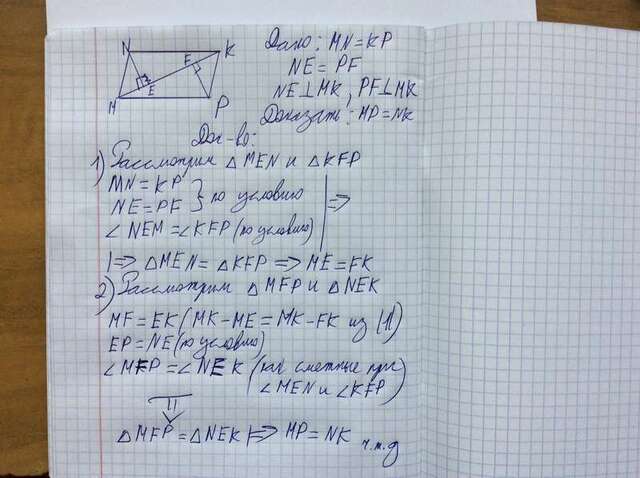 N
K
F
E
M
P
Дано: MN=KP
NE=PF
NE⊥MK, PF⊥MK
Доказать: MP=NK
Док-во:
1) Рассмотрим △MEN и △KFP
MN=KP
NE=PF } по условию
∠NEM=∠KFP (по условию) | =>
|=> △MEN=△KFP => ME=FK
2) Рассмотрим △MFP и △NEK
MF=EK (MK-ME=MK-FK из (1))
EP=NE (по условию)
∠MFP=∠NEK (как смежные при
∠MEN и ∠KFP)
△MFP=△NEK |=> MP=NK ч.т.д